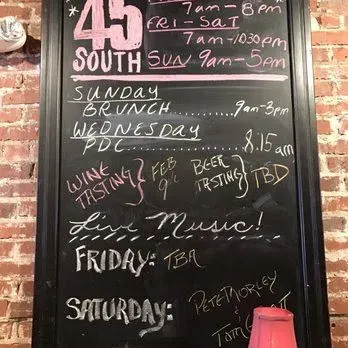 *45
SOUTH
7am-8pm
FRI-SAT
7am-10:30pm
SUN 9am-5pm
SUNDAY
BRUNCH..........9am-3pm
WEDNESDAY
PDC..............8:15am
WINE TASTING} FEB 9th
BEER TASTING} TBD
Live Music!
FRIDAY: TBA
SATURDAY: PETE MORLEY
&
TOM